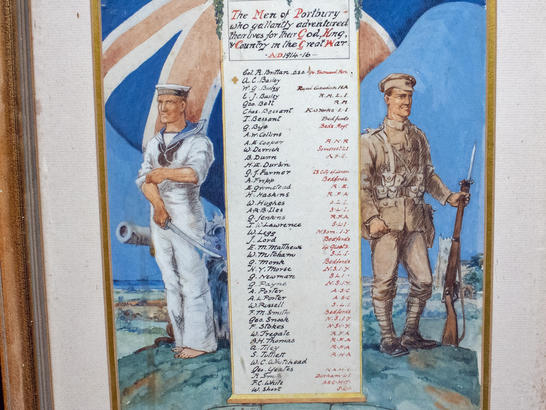 The Men of Portbury
who gallantly adventured
their lives for their God, King,
& Country in the Great War
A.D. 1914-16
Col. R. Brittan D.S.O.
A. C. Bailey
W. G. Bailey
L. J. Bailey R.M.L.I.
Geo. Ball R.N.
Chas. Bessant
T. Bessant Bedfords
G. Beds. Regt
A. W. Collins
A. E. Cooper R.N.R.
W. Derrick Somerset L.I.
B. Dunn
H. E. Durbin
G. J. Farmer
A. Fripp Bedfords
E. Grimstead R.E.
H. Haskins R.F.A.
W. Hughes S.L.I.
S.L.I.
G. Jenkins R.F.A.
I. W. Lawrence S.L.I.
W. Legg N. Som. I.Y.
J. Lord Bedfords
E. M. Matthews
W. Mitcham S.L.I.
G. Monk Bedfords
H. Y. Morse N.S.I.Y.
G. Newman S.L.I.
G. Payne N.S.I.Y.
A. Porter A.S.C.
A. L. Porter A.S.C.
W. Russell S.L.I.
F. M. Smith Bedfords
Geo. Snook N.S.I.Y.
F. Stokes N.S.I.Y.
W. Tregale R.F.A.
B. H. Thomas R.F.A.
A. Tiley R.F.A.
S. Tottlett R.H.A.
W. C. Whitehead
Geo. Yeates
R. Smith
F. C. White
W. Short